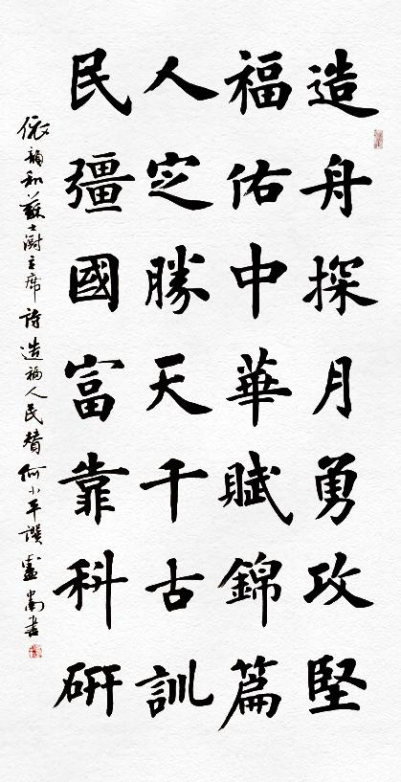 造舟探月勇攻堅
福佑中華賦錦篇
人定勝天千古訓
民彊國富靠科研
依韻和蘇士澍主席詩造福人民贊何小平譔憲尚書